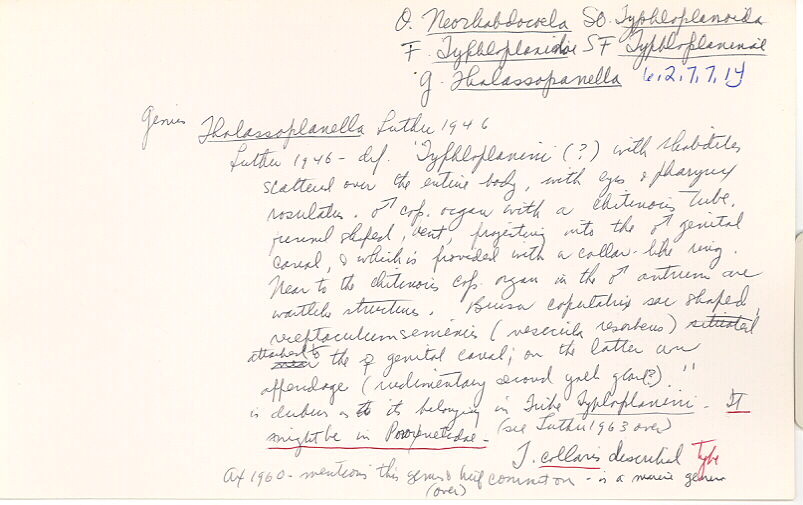 O. Neorhabdocoela SO. Typhloplanoida
F. Typhloplanidae SF Typhloplaninae
g. Thalassopanella 6.2.7.7.14
Genus Thalassoplanella Luther 1946
Luther 1946 - def. "Typhloplanini (?) with rhabdites
scattered over the entire body, with eyes & pharynx
rosulatus. ♂ cop. organ with a chitinous tube,
funnel shaped, bent, projecting into the ♂ genital
canal, & which is provided with a collar-like ring.
Near to the chitinous cop. organ in the ♂ antrum are
wartlike structures. Bursa copulatrix sac shaped,
receptaculum seminis (vesicula resorbens) situated
attached to the ♀ genital canal; on the latter an
appendage (rudimentary second yolk gland?)."
is dubius as to its belonging in Tribe Typhloplanini - It
might be in Proxenetidae - (see Luther 1963 over)
T. collaris described Type
Ax 1960 - mentions this genus & brief comment on - is a marine genus
(over)